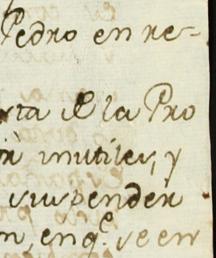 Pedro en re-
sta de la Pro
ir inutiles, y
suspender
n, en q.e se en